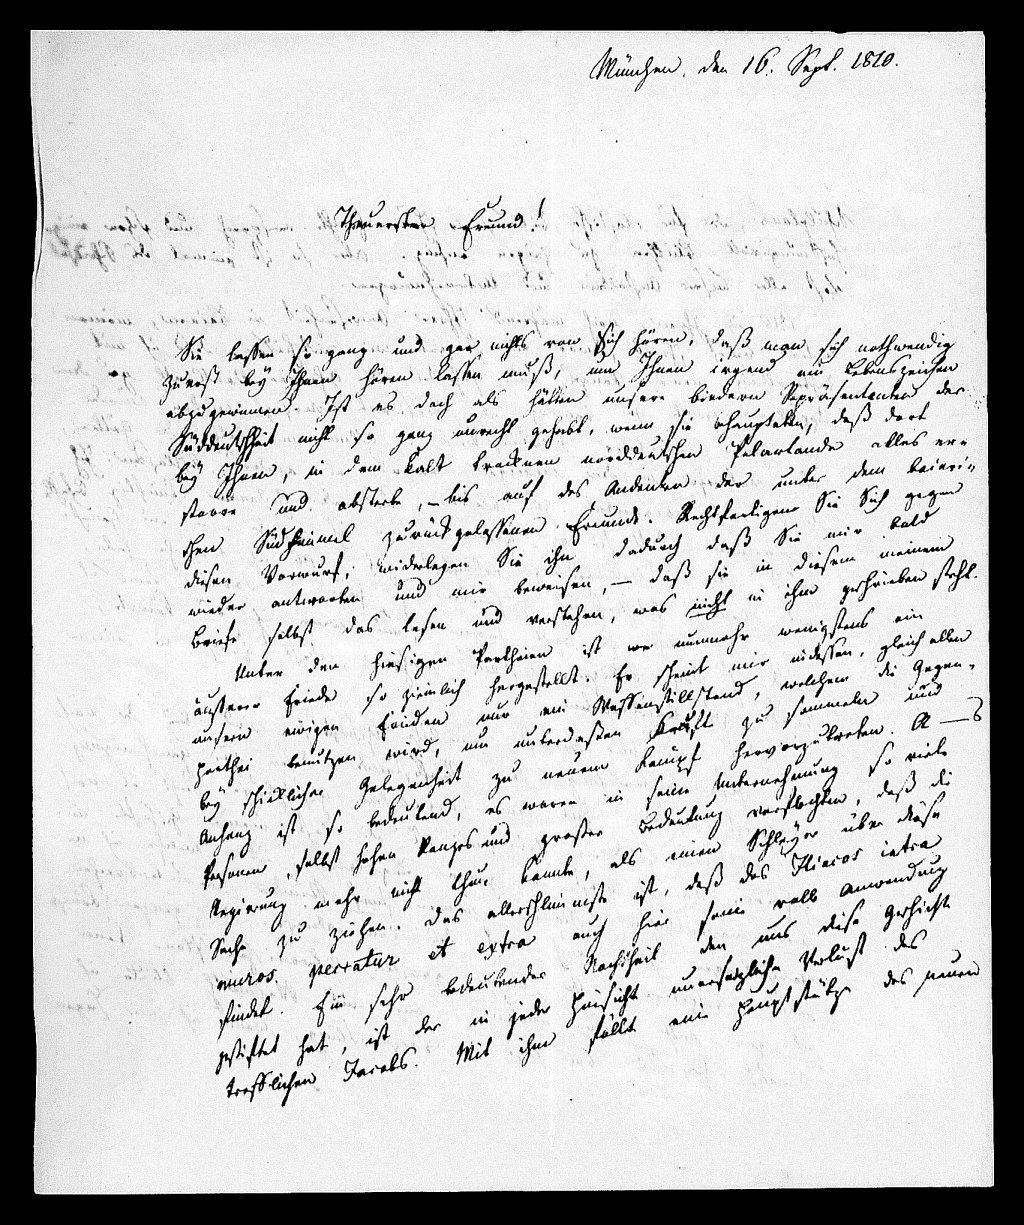 München, den 16. Sept. 1810.
Theuerster Freund!
Sie lassen so ganz und gar nichts von Sich hören, daß man sich nothwendig
zuerst bey Ihnen hören lassen muß, um Ihnen irgend ein Lebenszeichen
abzugewinnen. Ist es doch als hätten unsere biedern Repräsentanten der
Süddeutschheit nicht so ganz unrecht gehabt, wenn sie behaupteten, daß dort
bey Ihnen, in dem kalt trocknen norddeutschen Polarlande alles er-
starre und absterbe, – bis auf das Andenken der unter dem baieri-
schen Südhimmel zurückgelassenen Freunde. Rechtfertigen Sie Sich gegen
diesen Vorwurf; widerlegen Sie ihn dadurch daß Sie mir bald
wieder antworten und mir beweisen, – daß sie in diesem meinem
Briefe selbst das lesen und verstehen, was nicht in ihm geschrieben steht.
Unter den hiesigen Partheien ist nunmehr wenigstens ein
äusserer Friede so ziemlich hergestellt. Er scheint mir indessen, gleich allen
unsern ewigen Frieden nur ein Waffenstillstand, welchen die Gegen-
parthei benutzen wird, um unterdessen Kraft zu sammeln und
bey schicklicher Gelegenheit zu neuem Kampf hervorzutreten. A—s
Anhang ist so bedeutend, es waren in seine Unternehmung so viele
Personen, selbst hohen Ranges und großer Bedeutung verflochten, daß die
Regierung mehr nicht thun konnte, als einen Schleyer über diese
Sache zu ziehen. Das allerschlimmste ist, daß das Iliacos intra
muros peccatur et extra auch hier seine volle Anwendung
findet. Ein sehr bedeutender Nachtheil den uns diese Geschichte
gestiftet hat, ist der in jeder Hinsicht unersetzliche Verlust des
trefflichen Jacobs. Mit ihm fällt eine Hauptstütze des neuen